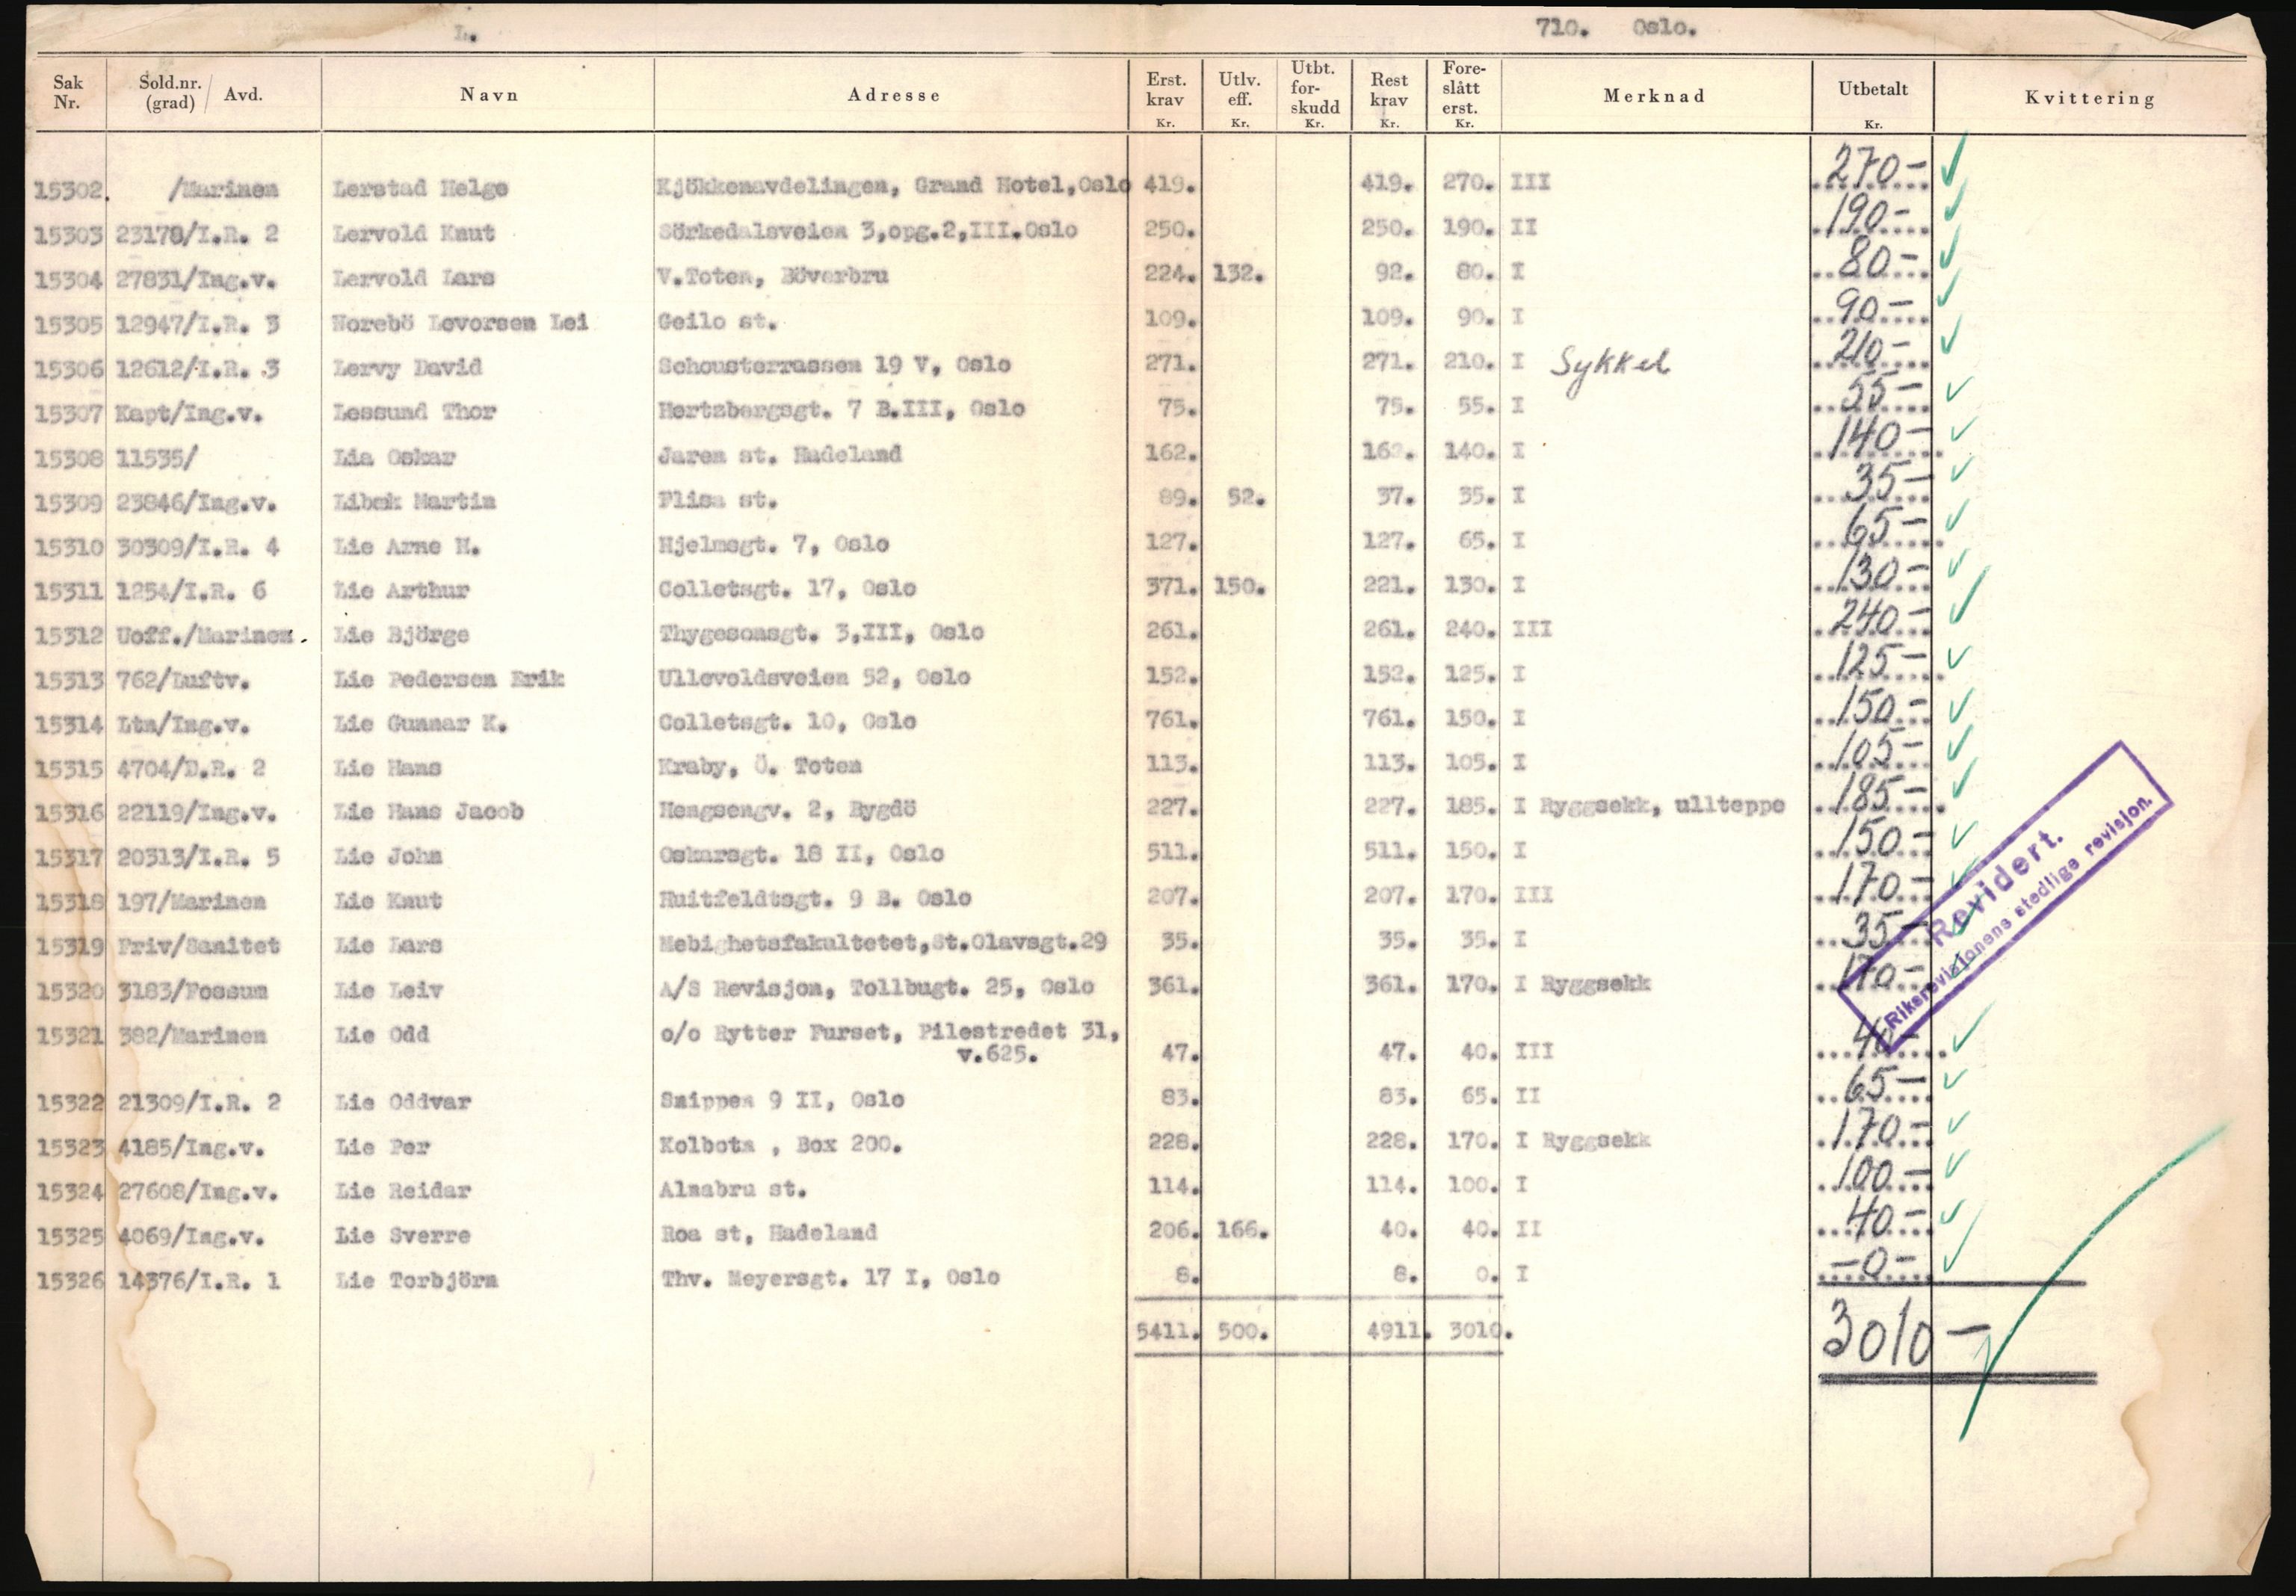 L. 710. Oslo.
Sak Nr. Sold.nr. (grad) / Avd. Navn Adresse Erst. krav Kr. Utlv. eff. Kr. Utbt. for- skudd Kr. Rest krav Kr. Fore- slått erst. Kr. Merknad Utbetalt Kr. Kvittering
15302. /Marinen Lerstad Helge Kjökkenavdelingen, Grand Hotel,Oslo 419. 419. 270. III 270-
15303 23178/I.R. 2 Lervold Knut Sörkedalsveien 3,opg.2,III.Oslo 250. 250. 190. II 190-
15304 27831/Ing.v. Lervold Lars V.Toten, Böverbru 224. 132. 92. 80. I 80-
15305 12947/I.R. 3 Norebö Levorsen Lei Geilo st. 109. 109. 90. I 90-
15306 12612/I.R. 3 Lervy David Schousterrassen 19 V, Oslo 271. 271. 210. I Sykkel 210-
15307 Kapt/Ing.v. Lessund Thor Hertzbergsgt. 7 B.III, Oslo 75. 75. 55. I 55-
15308 11535/ Lia Oskar Jaren st. Hadeland 162. 162. 140. I 140-
15309 23846/Ing.v. Libæk Martin Flisa st. 89. 52. 37. 35. I 35-
15310 30309/I.R. 4 Lie Arne H. Hjelmsgt. 7, Oslo 127. 127. 65. I 65-
15311 1254/I.R. 6 Lie Arthur Colletsgt. 17, Oslo 371. 150. 221. 130. I 130-
15312 Uoff./Marinen. Lie Björge Thygesonsgt. 3,III, Oslo 261. 261. 240. III 240-
15313 762/Luftv. Lie Pedersen Erik Ullevoldsveien 52, Oslo 152. 152. 125. I 125-
15314 Ltn/Ing.v. Lie Gunnar K. Colletsgt. 10, Oslo 761. 761. 150. I 150-
15315 4704/D.R. 2 Lie Hans Kraby, Ö. Toten 113. 113. 105. I 105-
15316 22119/Ing.v. Lie Hans Jacob Hengsengv. 2, Bygdö 227. 227. 185. I Ryggsekk, ullteppe 185-
15317 20313/I.R. 5 Lie John Oskarsgt. 18 II, Oslo 511. 511. 150. I 150-
15318 197/Marinen Lie Knut Huitfeldtsgt. 9 B. Oslo 207. 207. 170. III 170-
15319 Priv/Sanitet Lie Lars Mebighetsfakultetet,St.Olavsgt.29 35. 35. 35. I 35-
15320 3183/Fossum Lie Leiv A/S Revisjon, Tollbugt. 25, Oslo 361. 361. 170. I Ryggsekk 170-
15321 382/Marinen Lie Odd o/o Rytter Furset, Pilestredet 31,
v.625. 47. 47. 40. III 40-
15322 21309/I.R. 2 Lie Oddvar Snippen 9 II, Oslo 83. 83. 65. II 65-
15323 4185/Ing.v. Lie Per Kolbotn , Box 200. 228. 228. 170. I Ryggsekk 170-
15324 27608/Ing.v. Lie Reidar Alnabru st. 114. 114. 100. I 100-
15325 4069/Ing.v. Lie Sverre Roa st, Hadeland 206. 166. 40. 40. II 40-
15326 14376/I.R. 1 Lie Torbjörn Thv. Meyersgt. 17 I, Oslo 8. 8. 0. I -0-
5411. 500. 4911. 3010. 3010-
Revidert.
Riksrevisjonens stedlige revisjon.